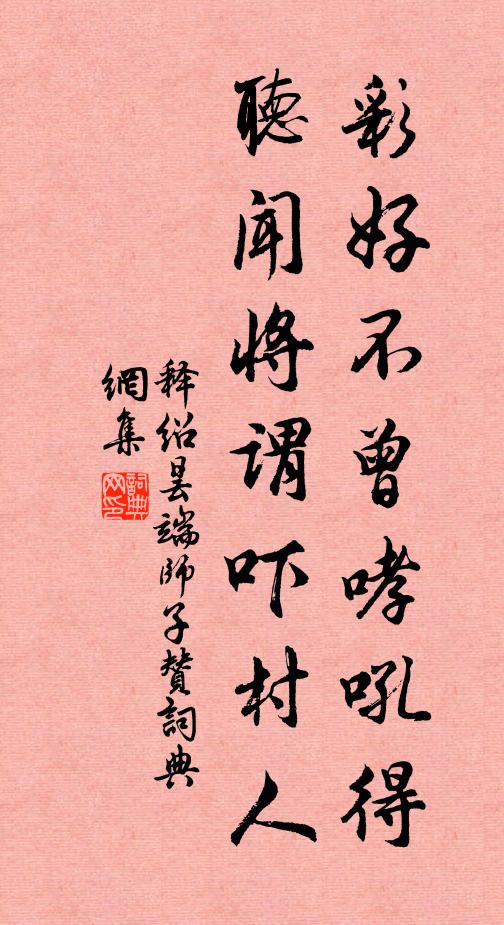 彩好不曾哮吼得
聽闻将谓吓村人
释绍昙端师子赞詞典
網集
詞典
网印